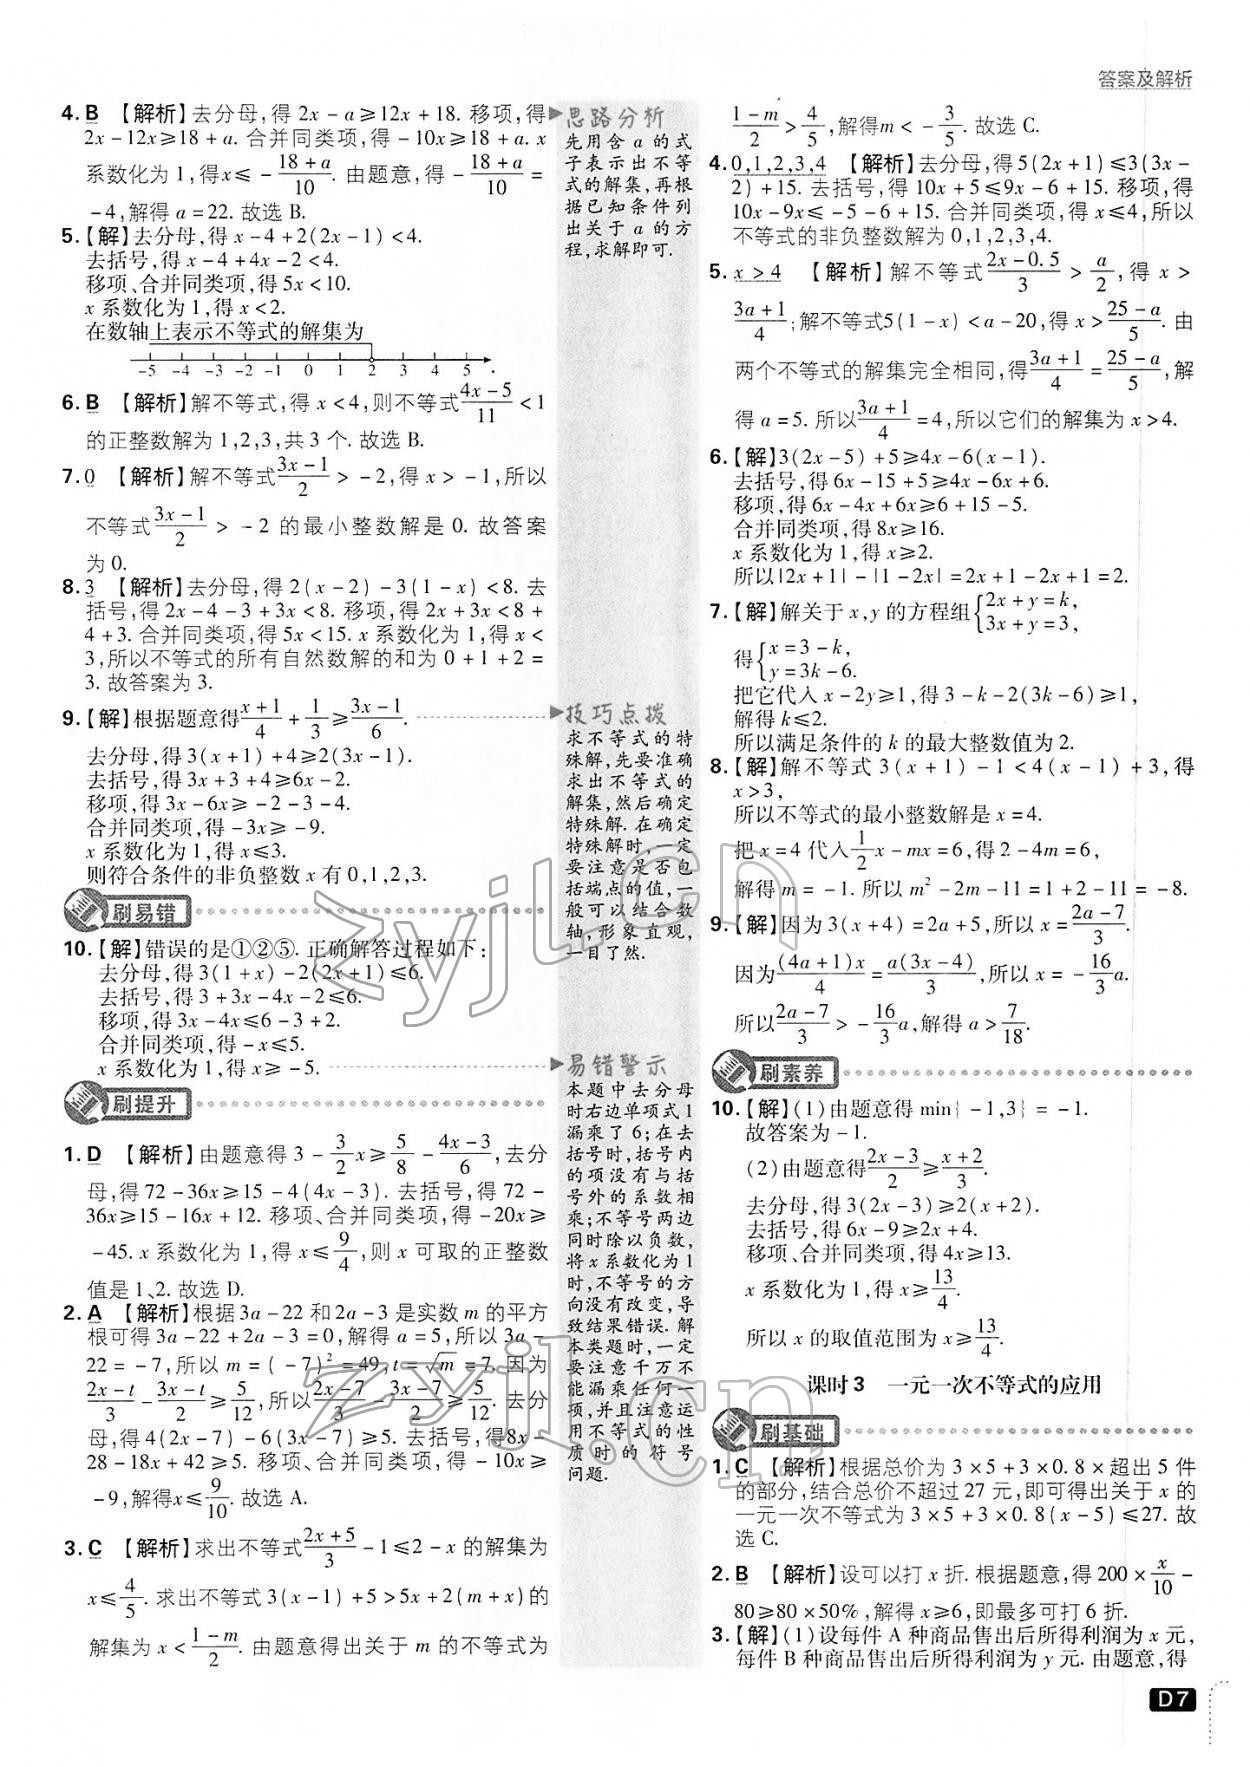 答案及解析
4. B 【解析】去分母,得 2x-a≥12x+18. 移项,得
2x-12x≥18+a. 合并同类项,得-10x≥18+a. x
系数化为 1,得x≤-\frac{18+a}{10}. 由题意,得-\frac{18+a}{10}=
-4,解得 a=22. 故选 B.
5.【解】去分母,得 x-4+2(2x-1)<4.
去括号,得 x-4+4x-2<4.
移项、合并同类项,得 5x<10.
x 系数化为 1,得 x<2.
在数轴上表示不等式的解集为
-5 -4 -3 -2 -1 0 1 2 3 4 5
6. B 【解析】解不等式,得 x<4,则不等式\frac{4x-5}{11}<1
的正整数解为 1,2,3,共 3 个. 故选 B.
7. 0 【解析】解不等式\frac{3x-1}{2}>-2,得 x>-1,所以
不等式\frac{3x-1}{2}>-2 的最小整数解是 0. 故答案
为 0.
8. 3 【解析】去分母,得 2(x-2)-3(1-x)<8. 去
括号,得 2x-4-3+3x<8. 移项,得 2x+3x<8+
4+3. 合并同类项,得 5x<15. x 系数化为 1,得 x<
3,所以不等式的所有自然数解的和为 0+1+2=
3. 故答案为 3.
9.【解】根据题意得\frac{x+1}{4}+\frac{1}{3}≥\frac{3x-1}{6}.
去分母,得 3(x+1)+4≥2(3x-1).
去括号,得 3x+3+4≥6x-2.
移项,得 3x-6x≥-2-3-4.
合并同类项,得-3x≥-9.
x 系数化为 1,得 x≤3.
则符合条件的非负整数 x 有 0,1,2,3.
刷易错
10.【解】错误的是①②⑤. 正确解答过程如下:
去分母,得 3(1+x)-2(2x+1)≤6.
去括号,得 3+3x-4x-2≤6.
移项,得 3x-4x≤6-3+2.
合并同类项,得-x≤5.
x 系数化为 1,得 x≥-5.
刷提升
1. D 【解析】由题意得 3-\frac{3}{2}x≥\frac{5}{8}-\frac{4x-3}{6},去分
母,得 72-36x≥15-4(4x-3). 去括号,得 72-
36x≥15-16x+12. 移项、合并同类项,得-20x≥
-45. x 系数化为 1,得 x≤\frac{9}{4},则 x 可取的正整数
值是 1、2. 故选 D.
2. A 【解析】根据 3a-22 和 2a-3 是实数 m 的平方
根可得 3a-22+2a-3=0,解得 a=5,所以 3a-
22=-7,所以 m=(-7)²=49,t=\sqrt{m}=7. 因为
\frac{2x-t}{3}-\frac{3x-t}{2}≥\frac{5}{12},所以\frac{2x-7}{3}-\frac{3x-7}{2}≥\frac{5}{12}. 去分
母,得 4(2x-7)-6(3x-7)≥5. 去括号,得8x-
28-18x+42≥5. 移项、合并同类项,得-10x≥
-9,解得x≤\frac{9}{10}. 故选 A.
3. C 【解析】求出不等式\frac{2x+5}{3}-1≤2-x 的解集为
x≤\frac{4}{5}. 求出不等式 3(x-1)+5>5x+2(m+x)的
解集为 x<\frac{1-m}{2}. 由题意得出关于 m 的不等式为
思路分析
先用含 a 的式
子表示出不等
式的解集,再根
据已知条件列
出关于 a 的方
程,求解即可.
技巧点拨
求不等式的特
殊解,先要准确
求出不等式的
解集,然后确定
特殊解. 在确定
特殊解时,一定
要注意是否包
括端点的值,一
般可以结合数
轴,形象直观,
一目了然.
易错警示
本题中去分母
时右边单项式 1
漏乘了 6;在去
括号时,括号内
的项没有与括
号外的系数相
乘;不等号两边
同时除以负数,
将 x 系数化为 1
时,不等号的方
向没有改变,导
致结果错误. 解
本类题时,一定
要注意千万不
能漏乘任何一
项,并且注意运
用不等式的性
质时的符号
问题.
\frac{1-m}{2}>\frac{4}{5},解得m<-\frac{3}{5}. 故选 C.
4. 0,1,2,3,4 【解析】去分母,得 5(2x+1)≤3(3x-
2)+15. 去括号,得 10x+5≤9x-6+15. 移项,得
10x-9x≤-5-6+15. 合并同类项,得 x≤4,所以
不等式的非负整数解为 0,1,2,3,4.
5. x>4 【解析】解不等式\frac{2x-0.5}{3}>\frac{a}{2},得 x>
\frac{3a+1}{4};解不等式5(1-x)<a-20,得 x>\frac{25-a}{5}. 由
两个不等式的解集完全相同,得\frac{3a+1}{4}=\frac{25-a}{5},解
得 a=5. 所以\frac{3a+1}{4}=4,所以它们的解集为 x>4.
6.【解】3(2x-5)+5≥4x-6(x-1).
去括号,得 6x-15+5≥4x-6x+6.
移项,得 6x-4x+6x≥6+15-5.
合并同类项,得 8x≥16.
x 系数化为 1,得 x≥2.
所以|2x+1|-|1-2x|=2x+1-2x+1=2.
7.【解】解关于 x,y 的方程组{2x+y=k,
3x+y=3,
得{x=3-k,
y=3k-6.
把它代入 x-2y≥1,得 3-k-2(3k-6)≥1,
解得 k≤2.
所以满足条件的 k 的最大整数值为 2.
8.【解】解不等式 3(x+1)-1<4(x-1)+3,得
x>3,
所以不等式的最小整数解是 x=4.
把 x=4 代入\frac{1}{2}x-mx=6,得 2-4m=6,
解得 m=-1. 所以 m²-2m-11=1+2-11=-8.
9.【解】因为 3(x+4)=2a+5,所以 x=\frac{2a-7}{3}.
因为\frac{(4a+1)x}{4}=\frac{a(3x-4)}{3},所以 x=-\frac{16}{3}a.
所以\frac{2a-7}{3}>-\frac{16}{3}a,解得 a>\frac{7}{18}.
刷素养
10.【解】(1)由题意得 min{-1,3}=-1.
故答案为-1.
(2)由题意得\frac{2x-3}{2}≥\frac{x+2}{3}.
去分母,得 3(2x-3)≥2(x+2).
去括号,得 6x-9≥2x+4.
移项、合并同类项,得 4x≥13.
x 系数化为 1,得 x≥\frac{13}{4}.
所以 x 的取值范围为 x≥\frac{13}{4}.
课时 3 一元一次不等式的应用
刷基础
1. C 【解析】根据总价为 3×5+3×0.8×超出 5 件
的部分,结合总价不超过 27 元,即可得出关于 x 的
一元一次不等式为 3×5+3×0.8(x-5)≤27. 故
选 C.
2. B 【解析】设可以打 x 折. 根据题意,得 200×\frac{x}{10}-
80≥80×50%,解得 x≥6,即最多可打 6 折.
3.【解】(1)设每件 A 种商品售出后所得利润为 x 元,
每件 B 种商品售出后所得利润为 y 元. 由题意,得
D7
zyjl.cn
zyjl.cn